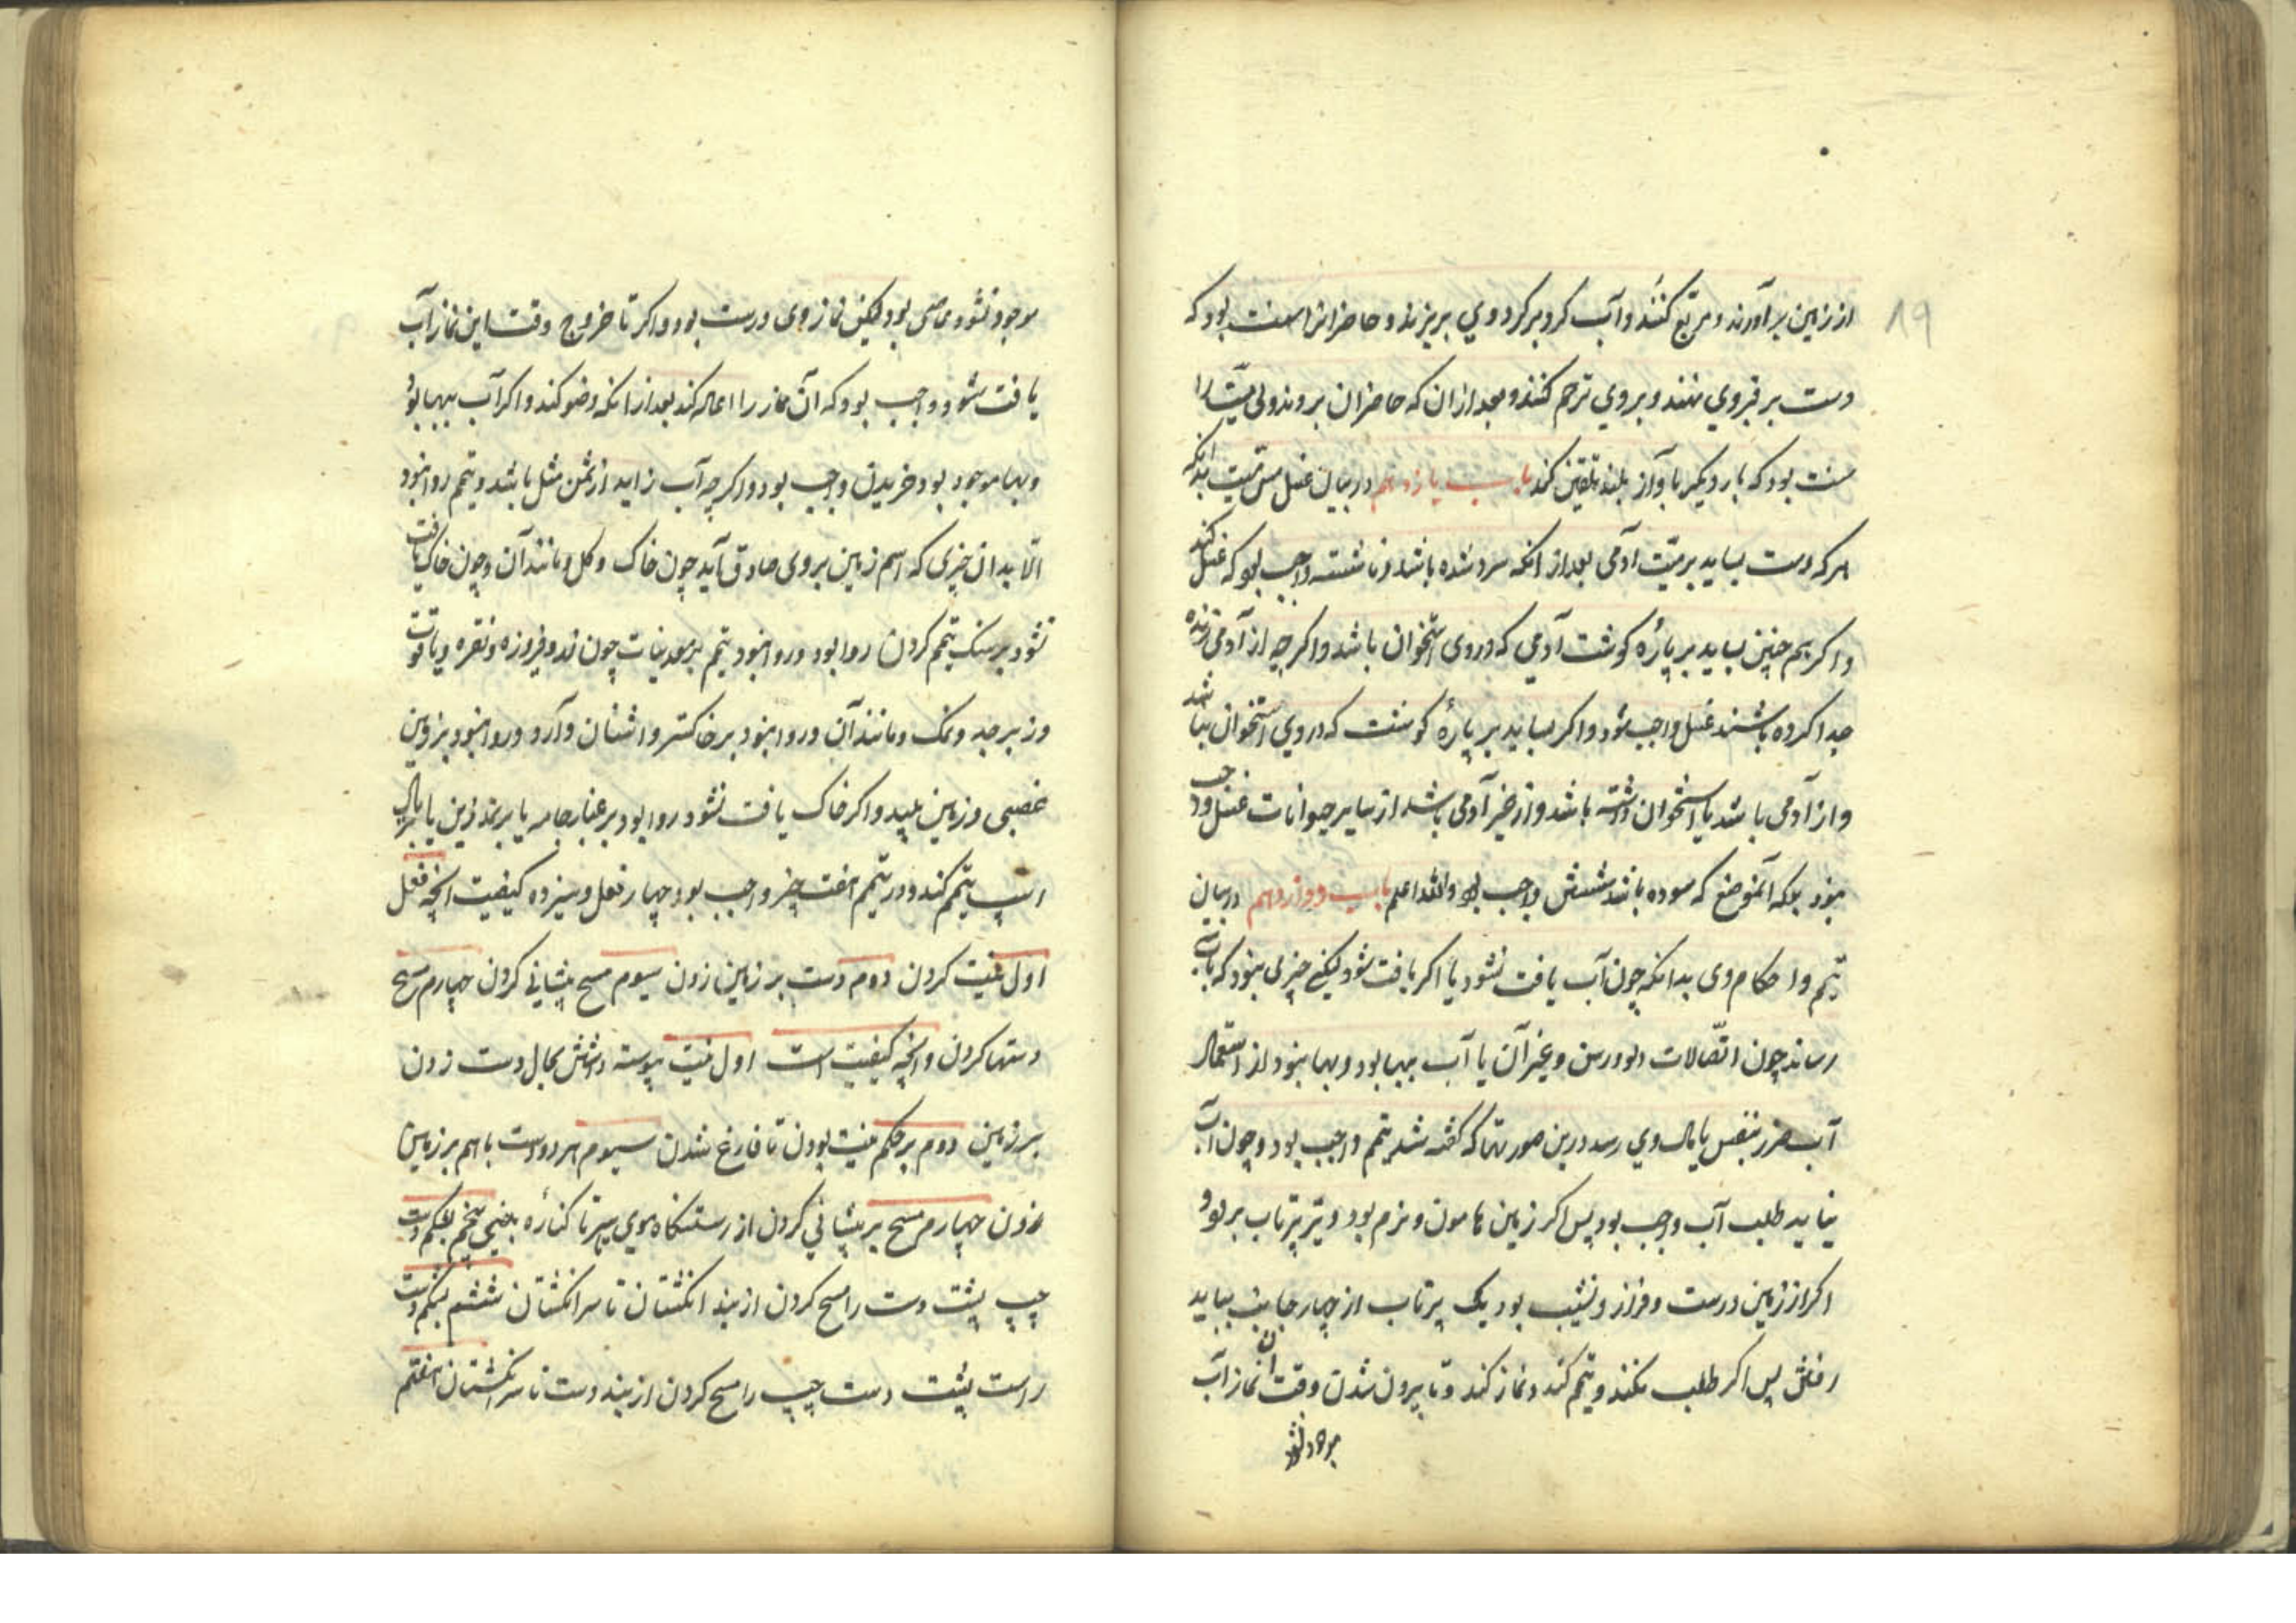 ۱۹
از زمین برآورند و مربع کنند و آب کرد بر کرد وی بریزند و حاضرانرا سنت بود که
دست بر قبر وی نهند و بر وی ترحم کنند و بعد از ان که حاضران بروند ولی میّت را
سنت بود که بار دیگر با واز بلند تلقین کند باب یازدهم در بیان غسل مس میّت بدانکه
هر که دست بساید بر میّت ادمی بعد از انکه سرد شده باشد و ناشسته واجب بود که غسل کند
و اکر همچنین بساید بر پارهٔ کوشت آدمی که در وی استخوان باشد و اکر چه از آدمی زنده
جدا کرده باشند غسل واجب شود و اکر بساید بر پارهٔ کوشت که در وی استخوان نباشد
و از آدمی باشد یا استخوان داشته باشد و از غیر آدمی باشد از سایر حیوانات غسل واجب
نبود بلکه آنموضع که سوده باشد شستش واجب بود والله اعلم باب دوازدهم در بیان
تیمم و احکام وی بدانکه چون آب یافت نشود یا اکر یافت شود لیکن چیزی نبود که باب
رساند چون اتصالات دلو و رسن و غیر آن یا آب ببها بود و بها نبود از استعمال
آب ضرر بنفس یا مال وی رسد درین صورتها که کفته شد تیمم واجب بود و چون آب
نیابد طلب آب واجب بود پس اکر زمین هامون و نرم بود دو تیر پرتاب برود و
اکر از زمین درست و فراز و نشیب بود یک پرتاب از چهار جانب بباید
رفتن پس اکر طلب نکند و تیمم کند و نماز کند و تا بیرون شدن وقت ان نماز آب
موجود نشود
موجود نشود عاصی بود لیکن نماز وی درست بود و اکر تا خروج وقت این نماز آب
یافت شود واجب بود که آن نماز را اعاده کند بعد از انکه وضو کند و اکر آب ببها بود
و بها موجود بود خریدن واجب بود و اکر چه آب زاید از ثمن مثل باشد و تیمم روا نبود
الّا بدان چیزی که اسم زمین بر وی صادق آید چون خاک و کل و مانند آن و چون خاک یافت
نشود بر سنک تیمم کردن روا بود و روا نبود تیمم بر معدنیات چون زر و فیروزه و نقره و یاقوت
و زبرجد و نمک و مانند آن و روا نبود بر خاکستر و اشنان و آرد و روا نبود بر زمین
غصبی و زمین پلید و اکر خاک یافت نشود روا بود بر غبار جامه یا بر نمد زین یا بر یال
اسپ تیمم کند و در تیمم هفت چیز واجب بود چهار فعل و سیزده کیفیت انچه فعل
اول نیت کردن دوم دست بر زمین زدن سیوم مسح پیشانی کردن چهارم مسح
دستها کردن و انچه کیفیت است اول نیت پیوسته داشتن بحال دست زدن
بر زمین دوم بر حکم نیت بودن تا فارغ شدن سیوم هر دو دست باهم بر زمین
زدن چهارم مسح بر پیشانی کردن از رستنکاه موی سر تا کنارهٔ بینی پنجم بشکم دست
چپ پشت دست را مسح کردن از بند انکشتان تا سر انکشتان ششم بشکم دست
راست پشت دست چپ را مسح کردن از بند دست تا سر انکشتان هفتم